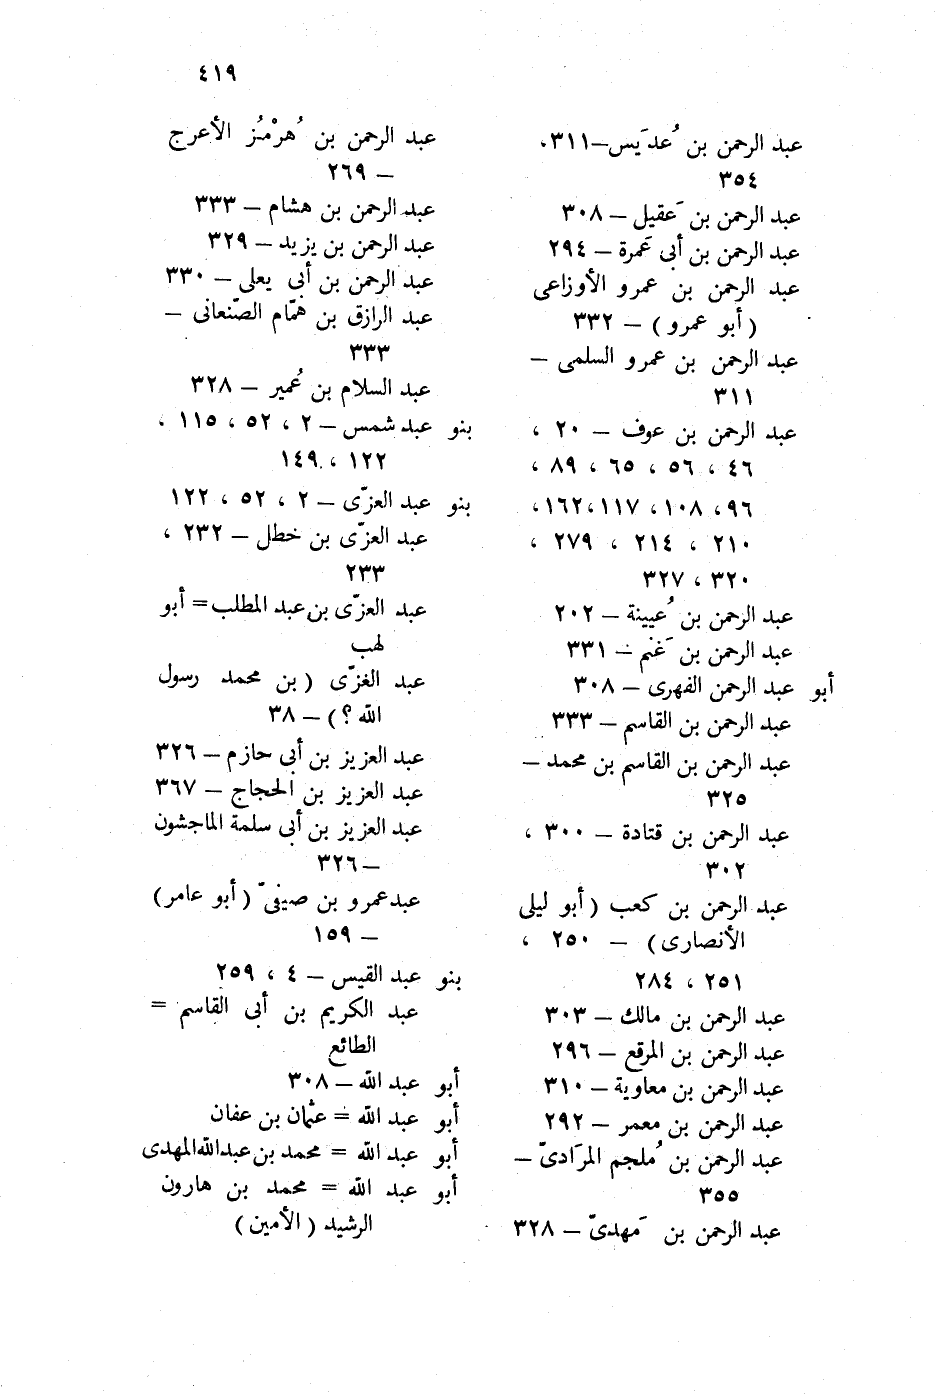 ٤١٩
عبد الرحمن بن عُدَيس – ٣١١،
٣٥٤
عبد الرحمن بن عَقيل – ٣٠٨
عبد الرحمن بن أبى عَمرة – ٢٩٤
عبد الرحمن بن عمرو الأوزاعى
( أبو عمرو ) – ٣٣٢
عبد الرحمن بن عمرو السلمى –
٣١١
عبد الرحمن بن عوف – ٢٠ ،
٤٦ ، ٥٦ ، ٦٥ ، ٨٩ ،
٩٦، ١٠٨، ١١٧،١٦٢،
٢١٠ ، ٢١٤ ، ٢٧٩ ،
٣٢٠ ، ٣٢٧
عبد الرحمن بن عُيينة – ٢٠٢
عبد الرحمن بن غَنم – ٣٣١
أبو عبد الرحمن الفهرى – ٣٠٨
عبد الرحمن بن القاسم – ٣٣٣
عبد الرحمن بن القاسم بن محمد –
٣٢٥
عبد الرحمن بن قتادة – ٣٠٠ ،
٣٠٢
عبد الرحمن بن كعب ( أبو ليلى
الأنصارى ) – ٢٥٠ ،
٢٥١ ، ٢٨٤
عبد الرحمن بن مالك – ٣٠٣
عبد الرحمن بن المرقع – ٢٩٦
عبد الرحمن بن معاوية – ٣١٠
عبد الرحمن بن معمر – ٢٩٢
عبد الرحمن بن مُلجم المرَادىّ –
٣٥٥
عبد الرحمن بن مَهدىّ – ٣٢٨
عبد الرحمن بن هُرْمُز الأعرج
– ٢٦٩
عبد الرحمن بن هشام – ٣٣٣
عبد الرحمن بن يزيد – ٣٢٩
عبد الرحمن بن أبى يعلى – ٣٣٠
عبد الرازق بن همّام الصّنعانى –
٣٣٣
عبد السلام بن عُمير – ٣٢٨
بنو عبد شمس – ٢ ، ٥٢ ، ١١٥ ،
١٢٢ ، ١٤٩
بنو عبد العزّى – ٢ ، ٥٢ ، ١٢٢
عبد العزّى بن خطل – ٢٣٢ ،
٢٣٣
عبد العزّى بن عبد المطلب = أبو
لهب
عبد الغزّى ( بن محمد رسول
الله ؟ ) – ٣٨
عبد العزيز بن أبى حازم – ٣٢٦
عبد العزيز بن الحجاج – ٣٦٧
عبد العزيز بن أبى سلمة الماجشون
– ٣٢٦
عبد عمرو بن صيفىّ ( أبو عامر )
– ١٥٩
بنو عبد القيس – ٤ ، ٢٥٩
عبد الكريم بن أبى القاسم =
الطائع
أبو عبد الله – ٣٠٨
أبو عبد الله = عثمان بن عفان
أبو عبد الله = محمد بن عبدالله المهدى
أبو عبد الله = محمد بن هارون
الرشيد ( الأمين )